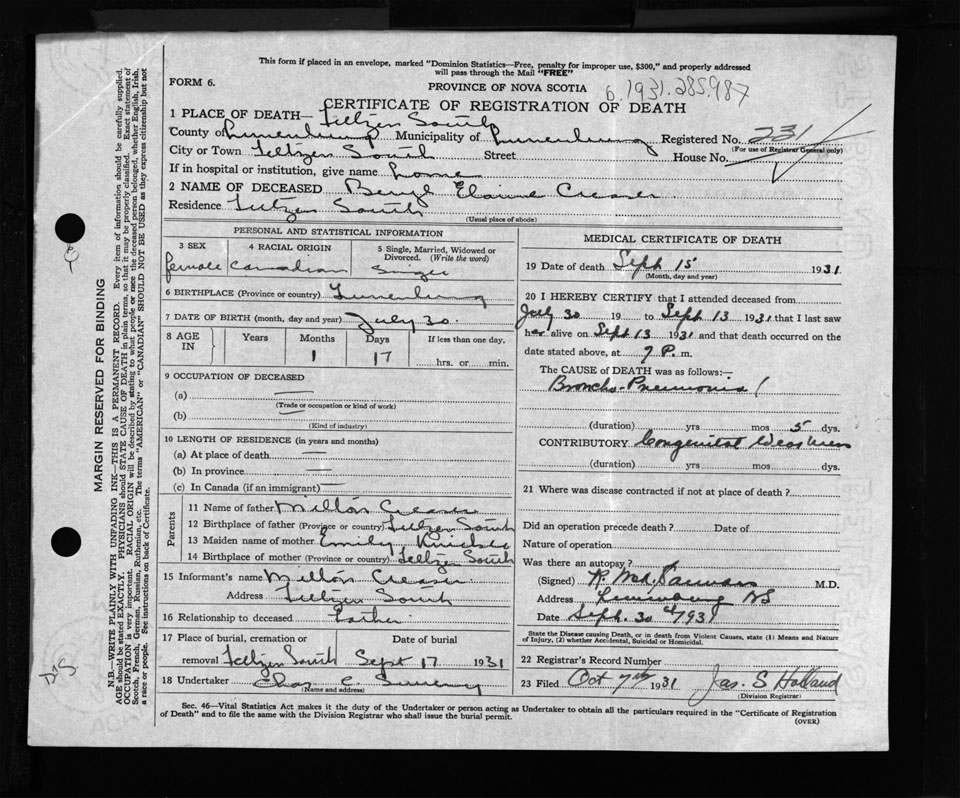 This form if placed in an envelope, marked "Dominion Statistics—Free, penalty for improper use, $300," and properly addressed
will pass through the Mail "FREE"
FORM 6.
PROVINCE OF NOVA SCOTIA
6.1931.285987
CERTIFICATE OF REGISTRATION OF DEATH
1 PLACE OF DEATH— Feltzen South
County of Lunenburg Municipality of Lunenburg Registered No. 231
(For use of Registrar General only)
City or Town Feltzen South Street House No.
If in hospital or institution, give name home
2 NAME OF DECEASED Beryl Elaine Creaser
Residence Feltzen South
(Usual place of abode)
PERSONAL AND STATISTICAL INFORMATION
3 SEX 4 RACIAL ORIGIN 5 Single, Married, Widowed or
Divorced. (Write the word)
female Canadian Single
6 BIRTHPLACE (Province or country) Lunenburg
7 DATE OF BIRTH (month, day and year) July 30.
8 AGE IN Years Months Days If less than one day.
1 17 hrs. or min.
9 OCCUPATION OF DECEASED
(a) —
(Trade or occupation or kind of work)
(b) —
(Kind of industry)
10 LENGTH OF RESIDENCE (in years and months)
(a) At place of death —
(b) In province —
(c) In Canada (if an immigrant) —
Parents
11 Name of father Milton Creaser
12 Birthplace of father (Province or country) Feltzen South
13 Maiden name of mother Emily
14 Birthplace of mother (Province or country) Feltzen South
15 Informant's name Milton Creaser
Address Feltzen South
16 Relationship to deceased Father
17 Place of burial, cremation or Date of burial
removal Feltzen South Sept 17 1931
18 Undertaker Chas C.
(Name and address)
MEDICAL CERTIFICATE OF DEATH
19 Date of death Sept 15 1931
(Month, day and year)
20 I HEREBY CERTIFY that I attended deceased from
July 30 19 to Sept 13 1931 that I last saw
her alive on Sept 13 1931 and that death occurred on the
date stated above, at 7 P. m.
The CAUSE OF DEATH was as follows:—
Broncho-Pneumonia
(duration) yrs mos 5 dys.
CONTRIBUTORY Congenital Weakness
(duration) yrs mos dys.
21 Where was disease contracted if not at place of death?
Did an operation precede death? Date of
Nature of operation
Was there an autopsy?
(Signed) M.D.
Address Lunenburg NS
Date Sept. 30 1931
State the Disease causing Death, or in death from Violent Causes, state (1) Means and Nature
of Injury, (2) whether Accidental, Suicidal or Homicidal.
22 Registrar's Record Number
23 Filed Oct 7th 1931 Jas. S Holland
(Division Registrar)
Sec. 46—Vital Statistics Act makes it the duty of the Undertaker or person acting as Undertaker to obtain all the particulars required in the "Certificate of Registration
of Death" and to file the same with the Division Registrar who shall issue the burial permit.
(OVER)
MARGIN RESERVED FOR BINDING
N.B.—WRITE PLAINLY WITH UNFADING INK—THIS IS A PERMANENT RECORD. Every item of information should be carefully supplied.
AGE should be stated EXACTLY. PHYSICIANS should STATE CAUSE OF DEATH in plain terms, so that it may be properly classified. Exact statement of
OCCUPATION is very important. RACIAL ORIGIN will be described by stating to what people or race the deceased person belonged, whether English, Irish,
Scotch, French, German, Russian, Ruthenian, etc. The terms "AMERICAN" or "CANADIAN" SHOULD NOT BE USED as they express citizenship but not
a race or people. See instructions on back of Certificate.